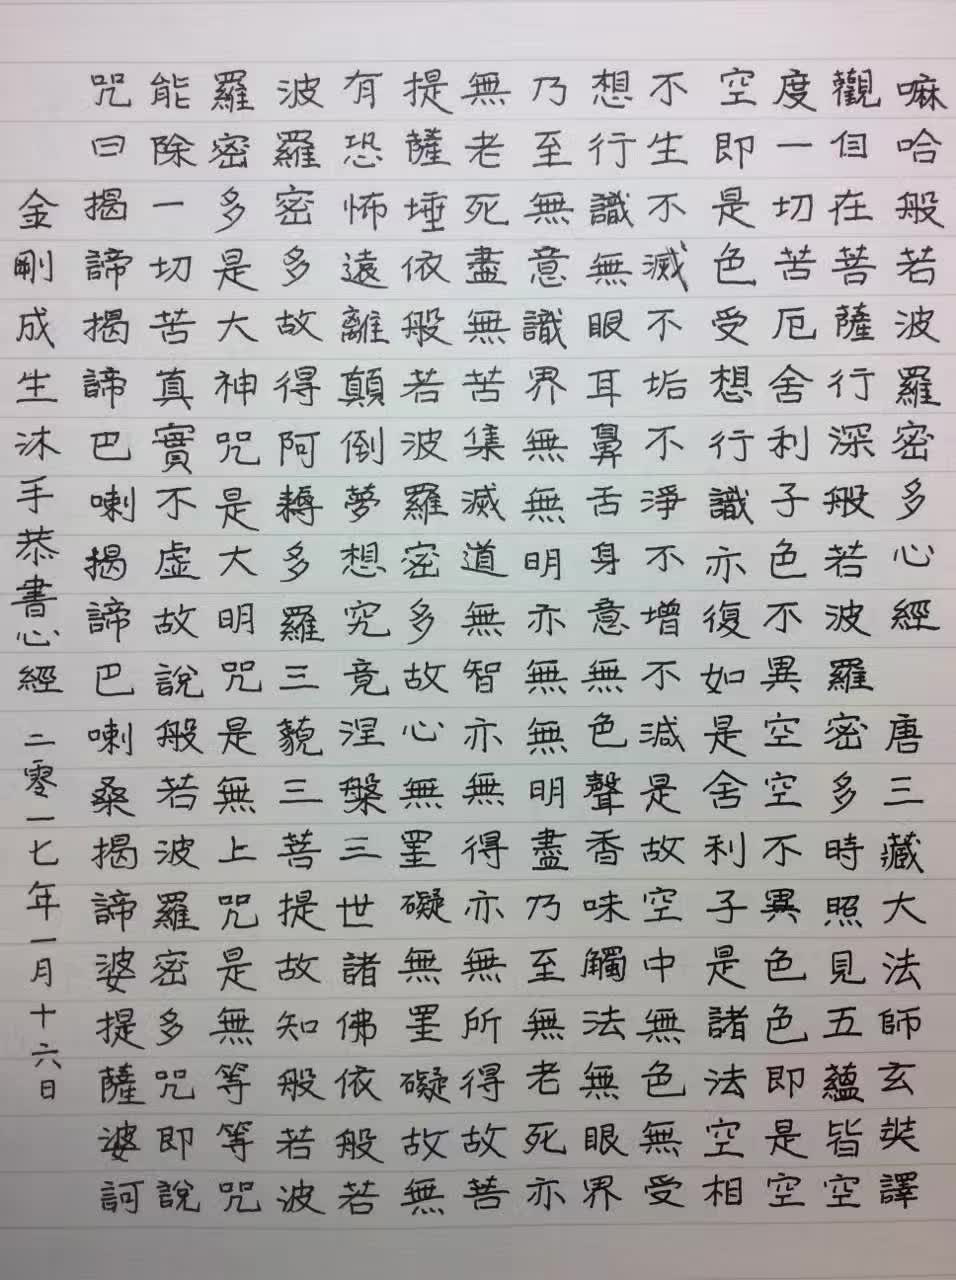 嘛哈般若波羅密多心經 唐三藏大法師玄奘譯
觀自在菩薩行深般若波羅密多時照見五蘊皆空
度一切苦厄舍利子色不異空空不異色色即是空
空即是色受想行識亦復如是舍利子是諸法空相
不生不滅不垢不淨不增不減是故空中無色無受
想行識無眼耳鼻舌身意無色聲香味觸法無眼界
乃至無意識界無無明亦無無明盡乃至無老死亦
無老死盡無苦集滅道無智亦無得亦無所得故菩
提薩埵依般若波羅密多故心無罣礙無罣礙故無
有恐怖遠離顛倒夢想究竟涅槃三世諸佛依般若
波羅密多故得阿耨多羅三藐三菩提故知般若波
羅密多是大神咒是大明咒是無上咒是無等等咒
能除一切苦真實不虛故說般若波羅密多咒即說
咒曰揭諦揭諦巴喇揭諦巴喇桑揭諦婆提薩婆訶
金剛成生沐手恭書心經 二零一七年一月十六日